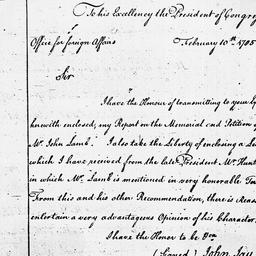 To his Excellency the President of Congre
Office for foreign Affairs February 10th 1785
Sir
I have the Honour of transmitting to your
herewith enclosed, my Report on the Memorial and Petition of
Mr. John Lamb. I also take the Liberty of enclosing a
which I have received from the late President Mr. Hunt
in which Mr. Lamb is mentioned in very honorable
From this and his other Recommendation, there is
entertain a very advantageous Opinion of his Character.
I have the Honor to be &ca
(Signed) John Jay